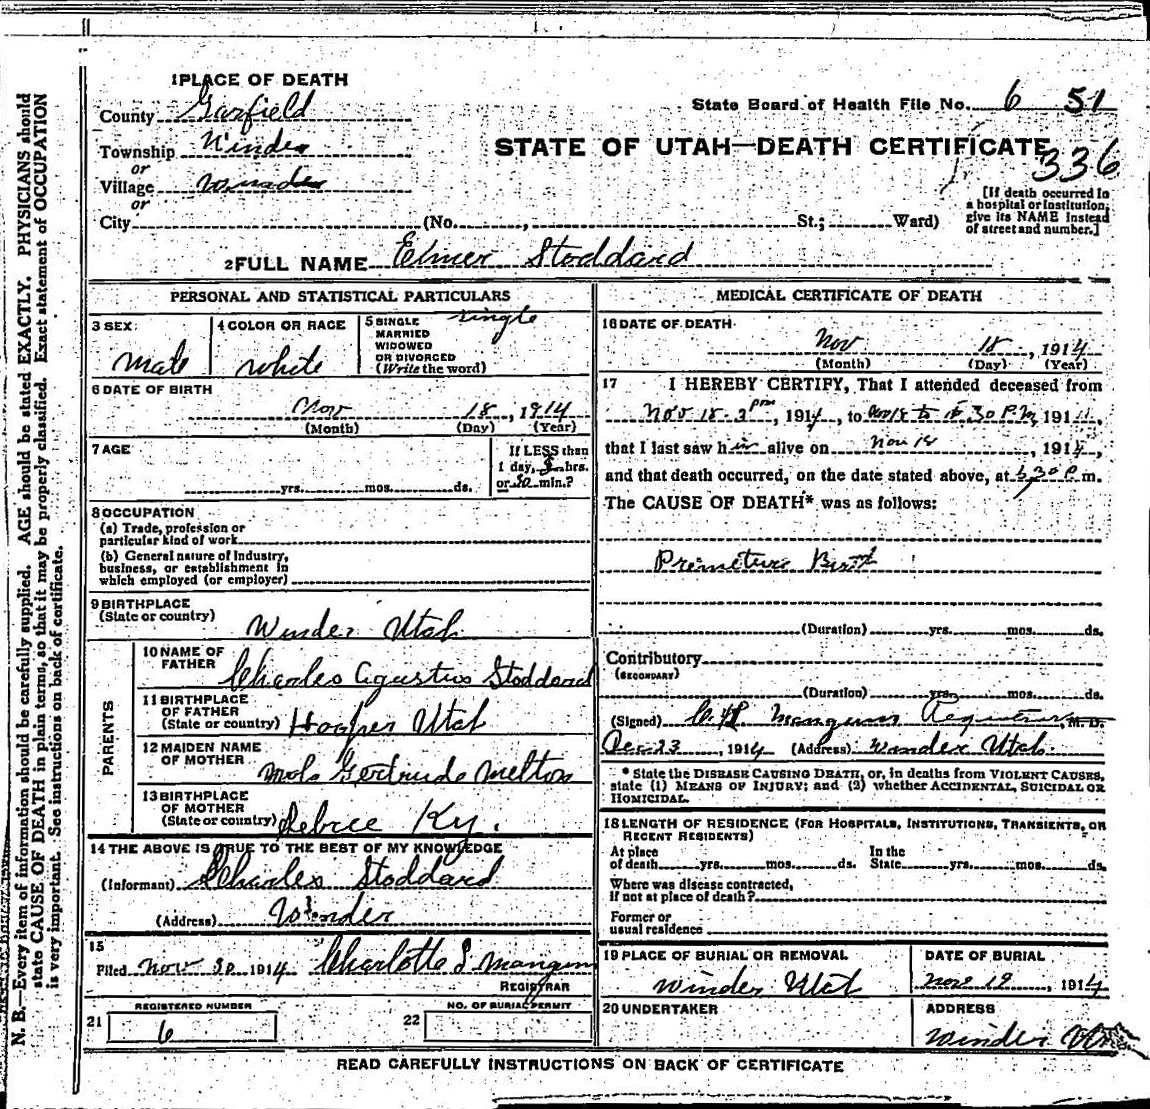 1 PLACE OF DEATH
County Garfield
State Board of Health File No. 6 51
Township Winder
STATE OF UTAH—DEATH CERTIFICATE
336
or
Village
or
City (No. , St.; Ward)
[If death occurred in
a hospital or institution,
give its NAME instead
of street and number.]
2 FULL NAME Elmer Stoddard
PERSONAL AND STATISTICAL PARTICULARS
3 SEX
male
4 COLOR OR RACE
white
5 SINGLE
MARRIED
WIDOWED
OR DIVORCED
(Write the word)
single
6 DATE OF BIRTH
Nov 18, 1914
(Month) (Day) (Year)
7 AGE
yrs. mos. ds.
If LESS than
1 day, hrs.
or 30 min.?
8 OCCUPATION
(a) Trade, profession or
particular kind of work
(b) General nature of industry,
business, or establishment in
which employed (or employer)
9 BIRTHPLACE
(State or country)
Winder Utah
PARENTS
10 NAME OF
FATHER
Charles Agustus Stoddard
11 BIRTHPLACE
OF FATHER
(State or country) Hooper Utah
12 MAIDEN NAME
OF MOTHER
Gertrude Melton
13 BIRTHPLACE
OF MOTHER
(State or country) Sebree Ky.
14 THE ABOVE IS TRUE TO THE BEST OF MY KNOWLEDGE
(Informant) Charles Stoddard
(Address) Winder
15
Filed Nov 30 1914 Charlotte S Mangum
REGISTRAR
REGISTERED NUMBER
21 6
NO. OF BURIAL PERMIT
22
MEDICAL CERTIFICATE OF DEATH
16 DATE OF DEATH
Nov 18, 1914
(Month) (Day) (Year)
17 I HEREBY CERTIFY, That I attended deceased from
Nov 18 pm, 1914, to 30 P.M, 191
that I last saw him alive on Nov 18, 1914,
and that death occurred, on the date stated above, at 30 P. m.
The CAUSE OF DEATH* was as follows:
Primeture Birth
(Duration) yrs. mos. ds.
Contributory
(SECONDARY)
(Duration) yrs. mos. ds.
(Signed) Mangum M. D.
Dec 23, 1914 (Address) Winder Utah.
* State the DISEASE CAUSING DEATH, or, in deaths from VIOLENT CAUSES,
state (1) MEANS OF INJURY; and (2) whether ACCIDENTAL, SUICIDAL OR
HOMICIDAL.
18 LENGTH OF RESIDENCE (FOR HOSPITALS, INSTITUTIONS, TRANSIENTS, OR
RECENT RESIDENTS)
At place
of death yrs. mos. ds.
In the
State yrs. mos. ds.
Where was disease contracted,
if not at place of death?
Former or
usual residence
19 PLACE OF BURIAL OR REMOVAL
Winder Utah
DATE OF BURIAL
Nov 19, 1914
20 UNDERTAKER
ADDRESS
Winder
READ CAREFULLY INSTRUCTIONS ON BACK OF CERTIFICATE
N. B.—Every item of information should be carefully supplied. AGE should be stated EXACTLY. PHYSICIANS should
state CAUSE OF DEATH in plain terms, so that it may be properly classified. Exact statement of OCCUPATION
is very important. See instructions on back of certificate.